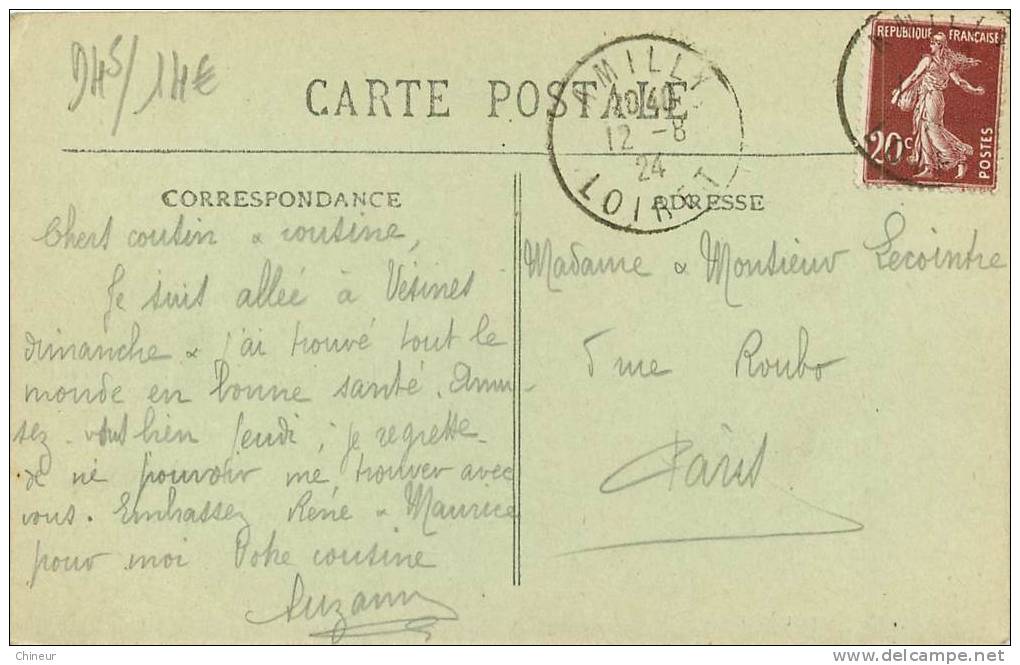 945/14€
CARTE POSTALE
AMILLY
10 40
12 -8
24
LOIRET
AMILLY
REPUBLIQUE FRANÇAISE
20c
POSTES
CORRESPONDANCE
Chers cousin & cousine,
Je suis allée à Vésines
dimanche & j'ai trouvé tout le
monde en bonne santé. Amu-
sez-vous bien jeudi ; je regrette
de ne pouvoir me trouver avec
vous. Embrassez René & Maurice
pour moi Votre cousine
Suzanne
ADRESSE
Madame & Monsieur Lecointre
5 rue Roubo
Paris
Chineur
delcampe.net